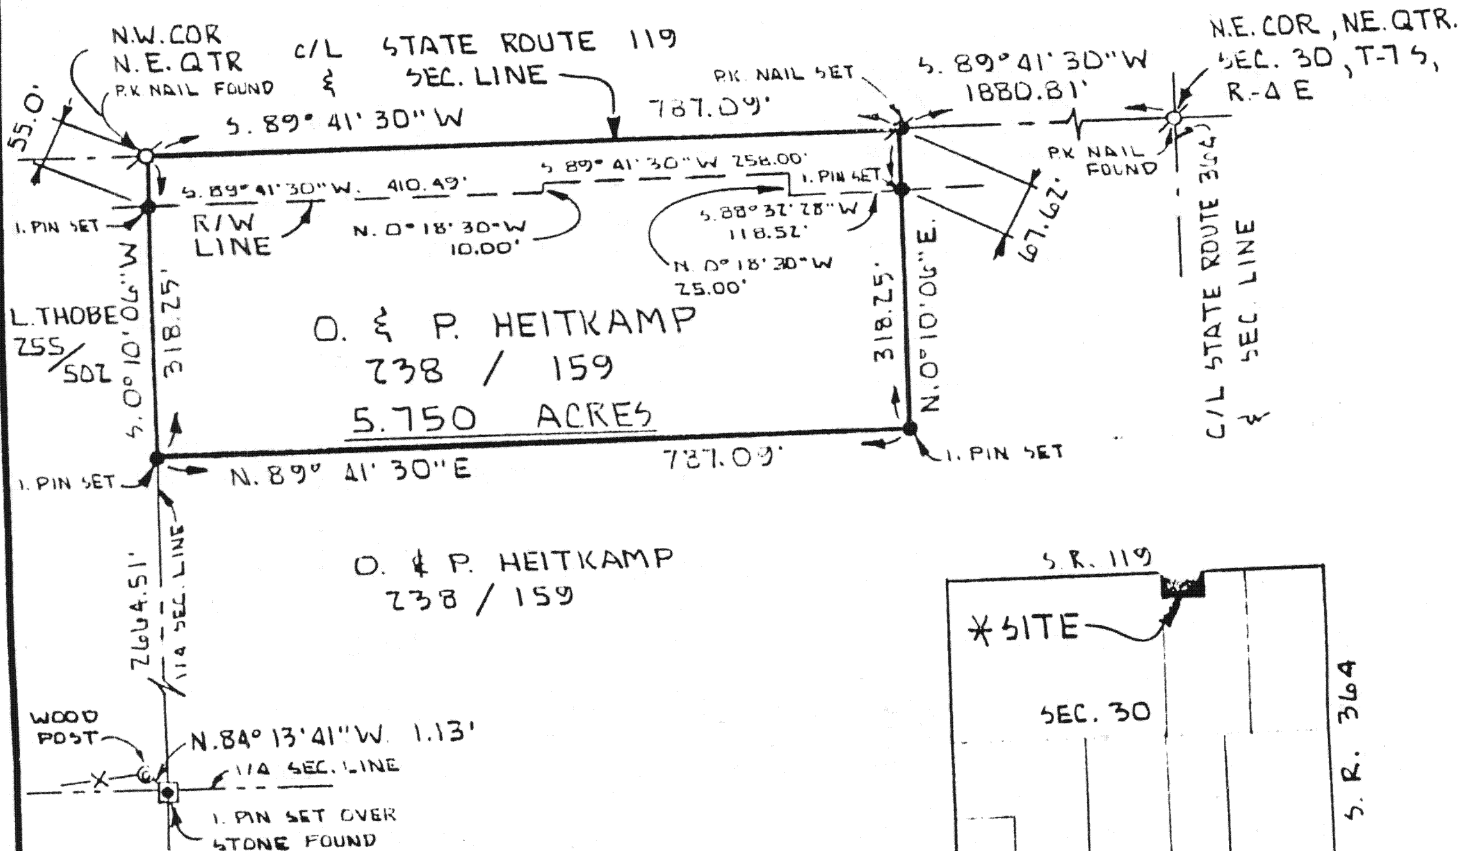 N.W. COR
N.E. QTR
P.K NAIL FOUND
C/L STATE ROUTE 119
& SEC. LINE
P.K. NAIL SET
S. 89° 41' 30" W
1880.81'
N.E. COR, NE. QTR.
SEC. 30, T-7 S,
R.-4 E
55.0'
S. 89° 41' 30" W
787.09'
P.K NAIL
FOUND
S. 89° 41' 30" W. 410.49'
S 89° 41' 30" W 258.00'
1. PIN SET
1. PIN SET
R/W
LINE
N. 0° 18' 30" W
10.00'
S. 88° 32' 28" W
118.52'
67.62'
N. 0° 18' 30" W
25.00'
L. THOBE
255/502
S. 0° 10' 06" W
318.25'
O. & P. HEITKAMP
238 / 159
5.750 ACRES
318.25'
N. 0° 10' 06" E.
C/L STATE ROUTE 364
& SEC. LINE
1. PIN SET
N. 89° 41' 30" E
787.09'
1. PIN SET
2664.51'
1/4 SEC. LINE
O. & P. HEITKAMP
238 / 159
S. R. 119
* SITE
SEC. 30
S. R. 364
WOOD
POST
N. 84° 13' 41" W. 1.13'
1/4 SEC. LINE
1. PIN SET OVER
STONE FOUND